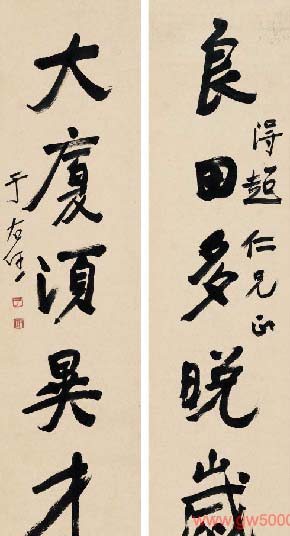 良田多晚歲
得超仁兄正
大廈須異才
于右任
www.gw5000